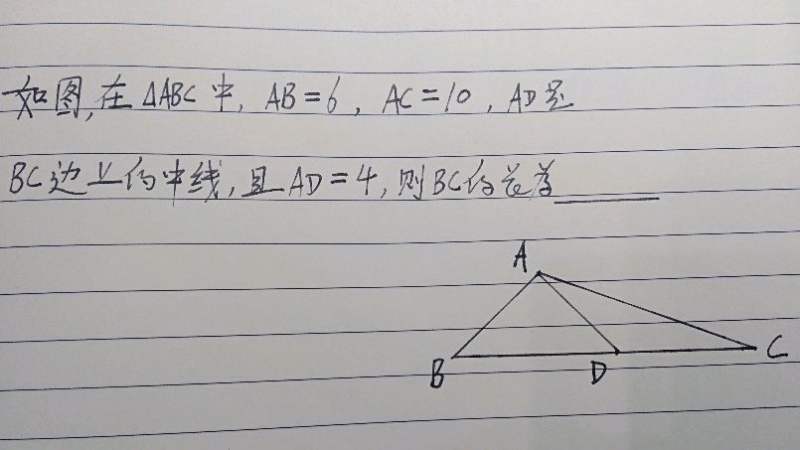 如图,在△ABC中, AB=6, AC=10, AD是
BC边上的中线,且AD=4,则BC的长为______
A
B
D
C